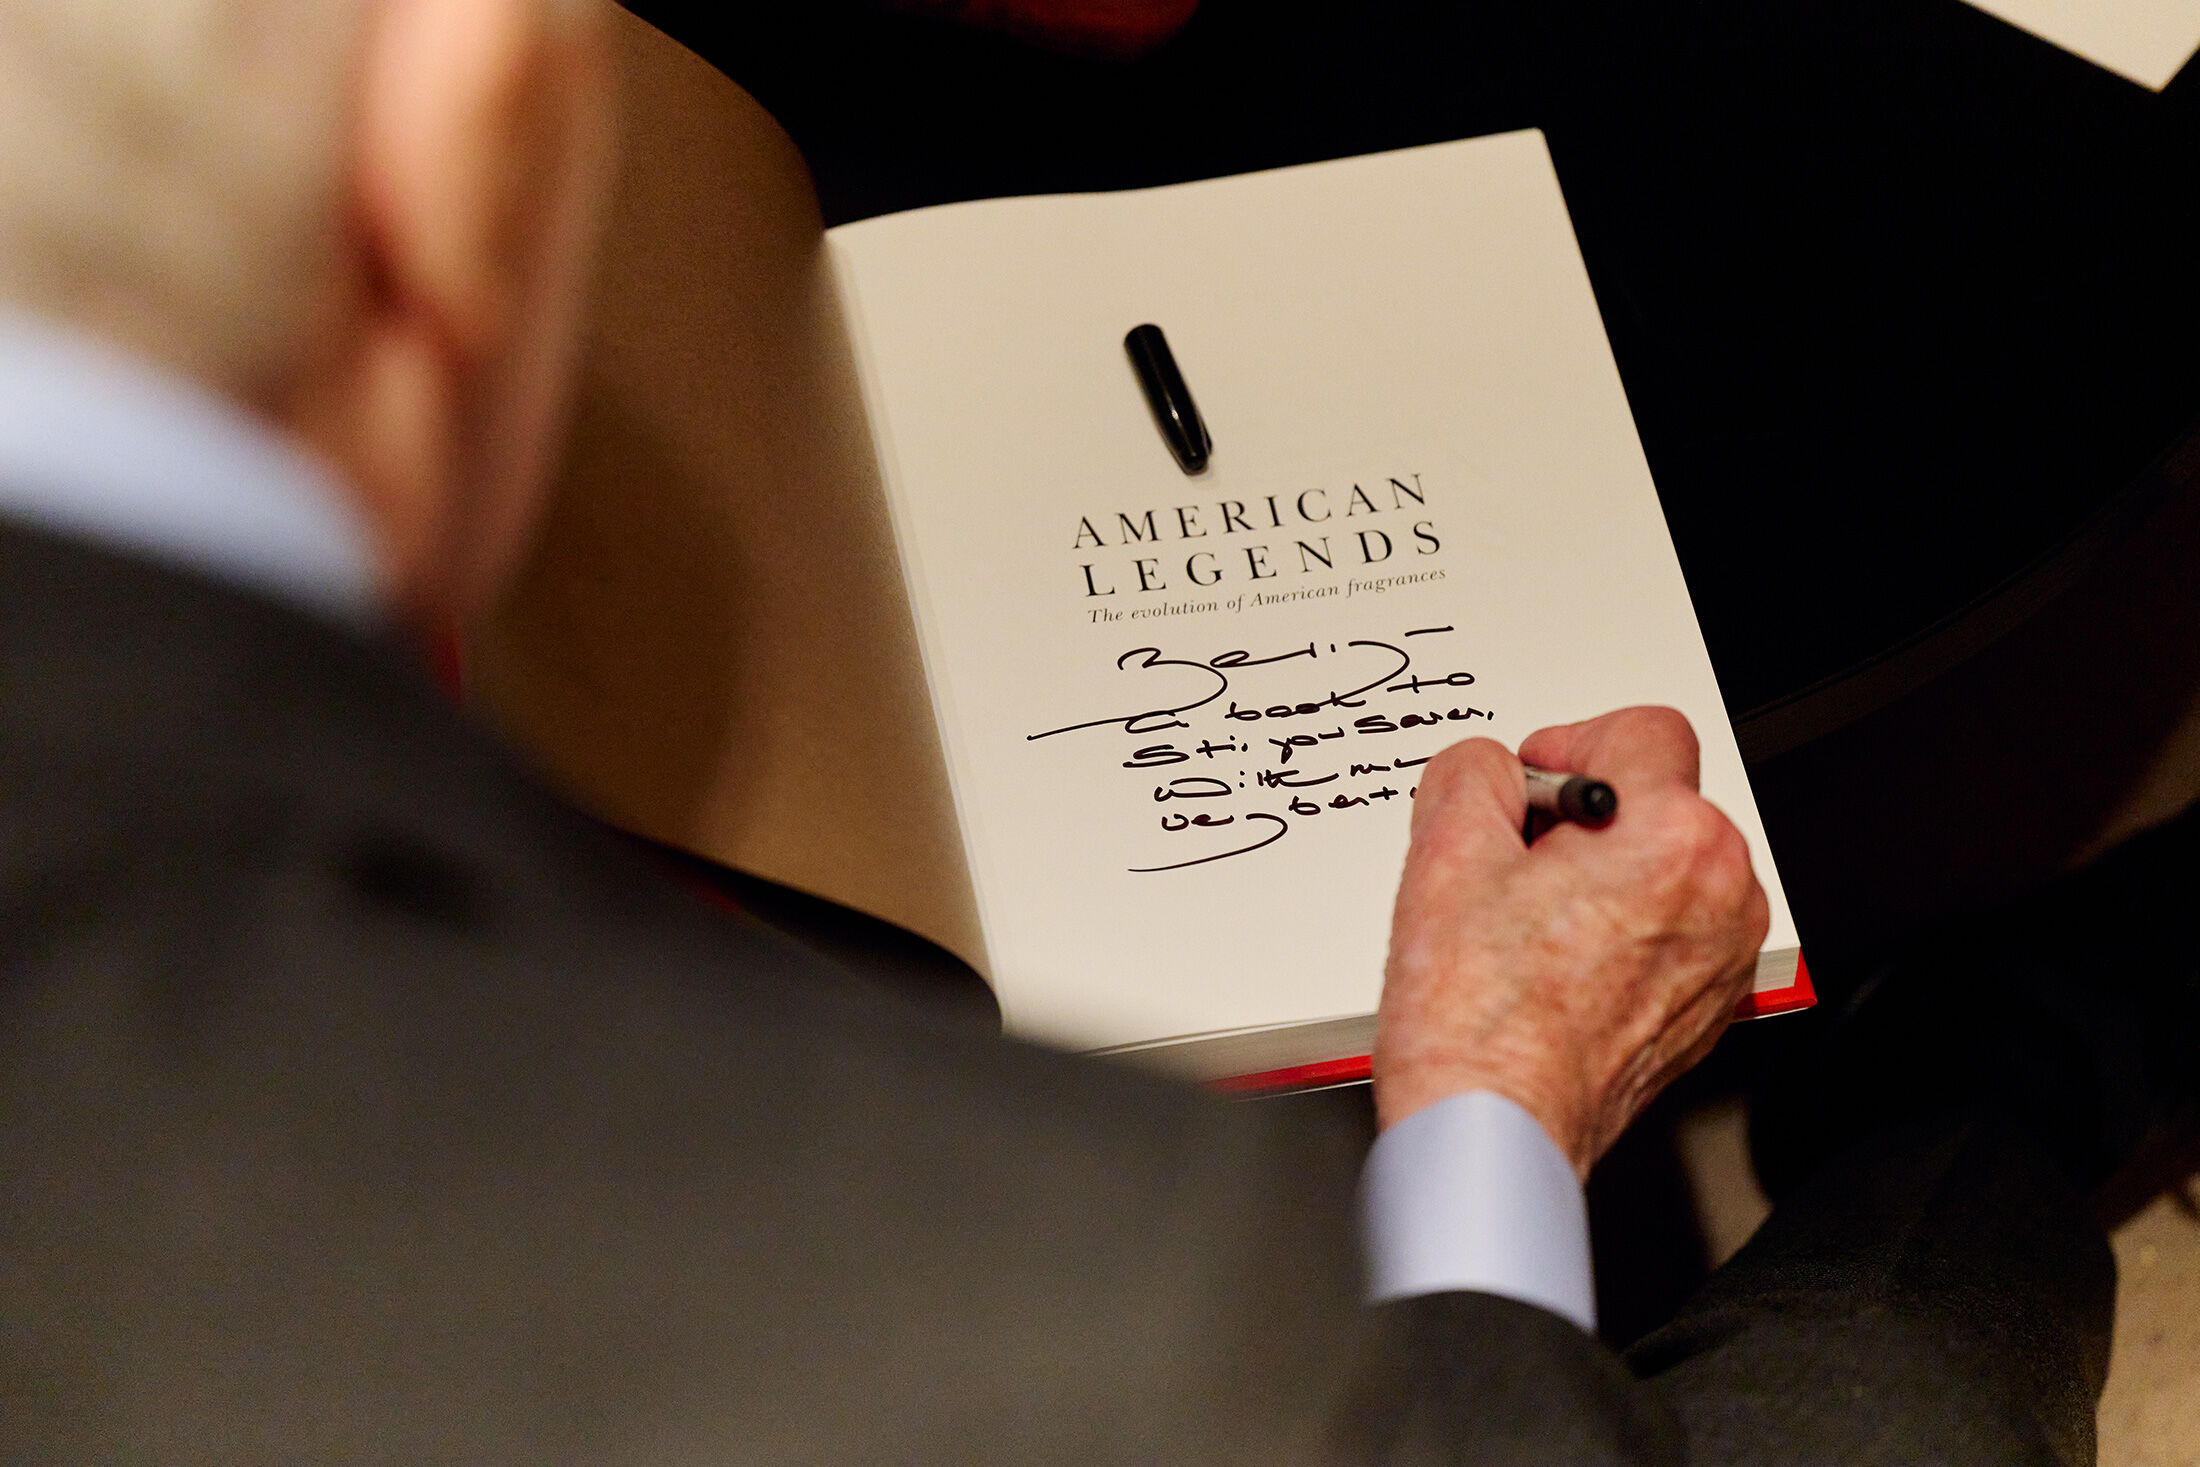 AMERICAN
LEGENDS
The evolution of American fragrances
a book to
Stir your Senses,
With my
very best